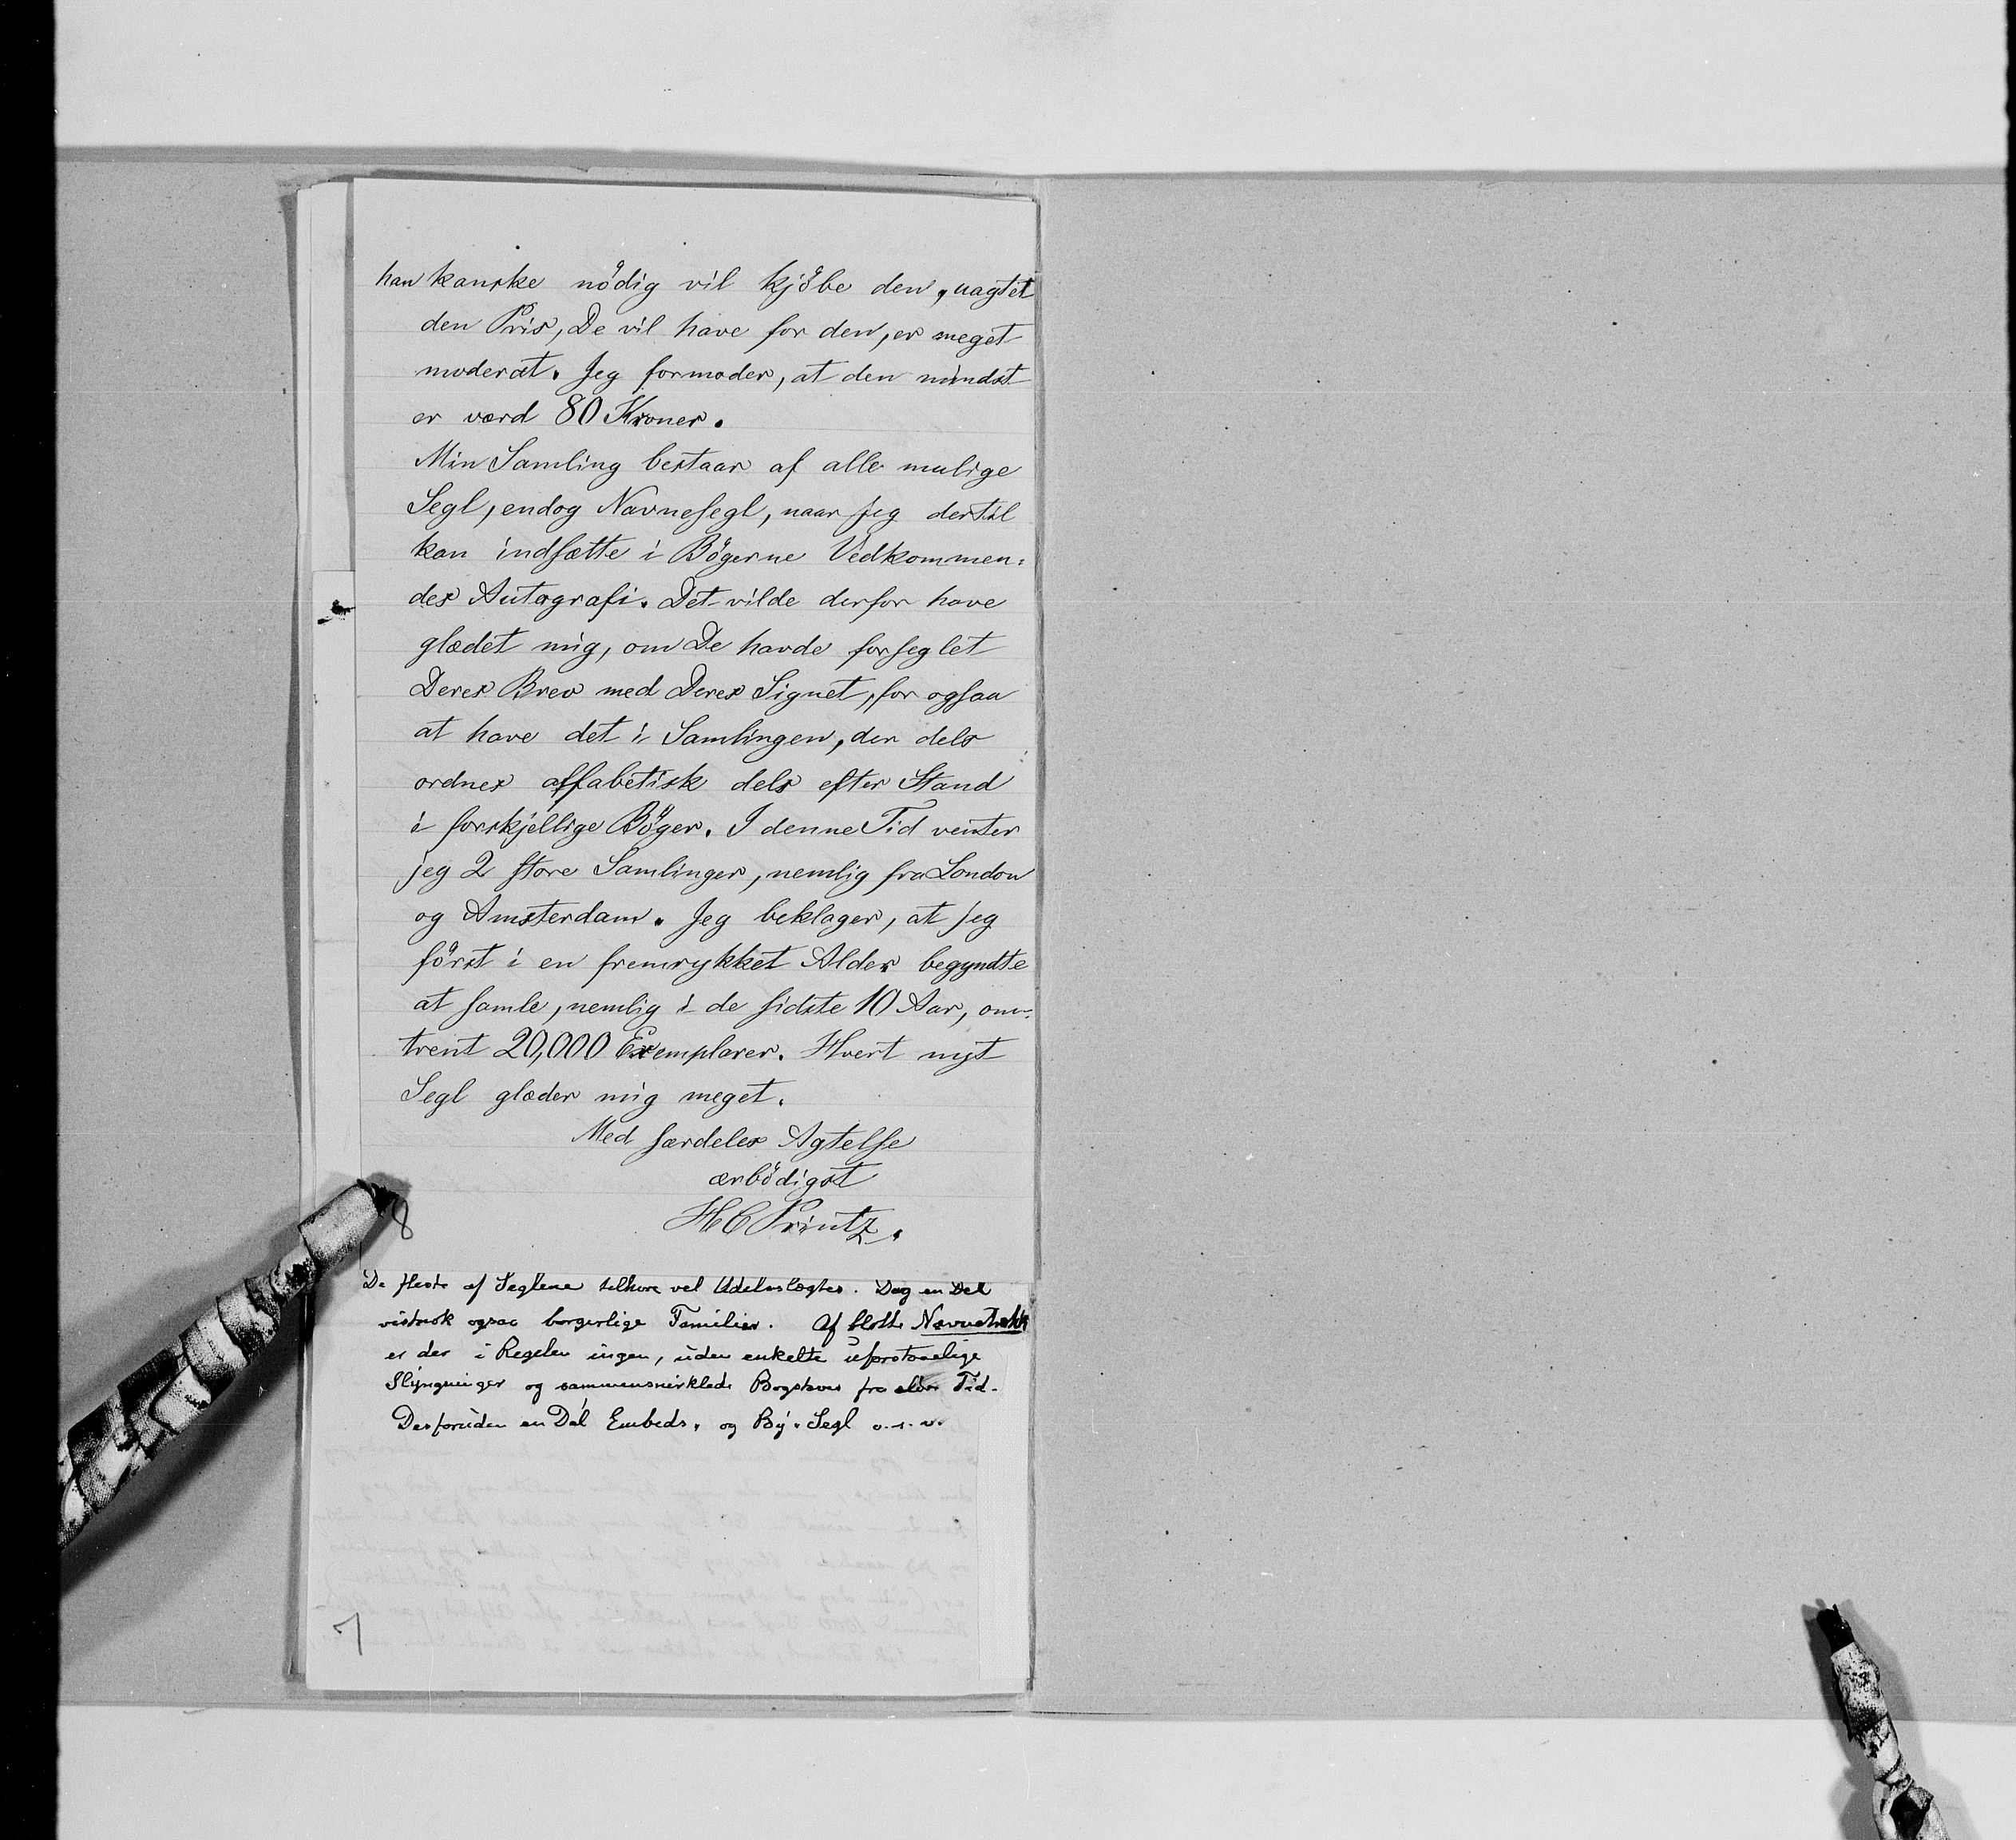 han kanske nödig vil kjöbe den, uagtet
den Pris, De vil have for den, er meget
moderat. Jeg formoder, at den mindst
er værd 80 Kroner.
Min Samling bestaar af alle mulige
Segl, endog Navnesegl, naar jeg dertil
kan indsætte i Bögerne Vedkommen-
des Autografi. Det vilde derfor have
glædet mig, om De havde forseglet
Deres Brev med Deres Signet, for ogsaa
at have det i Samlingen, der dels
ordnes alfabetisk dels efter Stand
i forskjellige Böger. I denne Tid venter
jeg 2 store Samlinger, nemlig fra London
og Amsterdam. Jeg beklager, at jeg
först i en fremrykket Alder begyndte
at samle, nemlig i de sidste 10 Aar, om-
trent 20,000 Exemplarer. Hvert nyt
Segl glæder mig meget.
Med særdeles Agtelse
ærbödigst
H C Printz.
8
De fleste af Seglene tilhøre vel Adelsslægter. Dog en Del
vistnok ogsaa borgerlige Familier. Af blotte Navnetrækk
er der i Regelen ingen, uden enkelte uforstaaelige
Slyngninger og sammensnirklede Bogstaver fra ældre Tid.
Desforuden en Del Embeds- og By-Segl o. s. v.
7